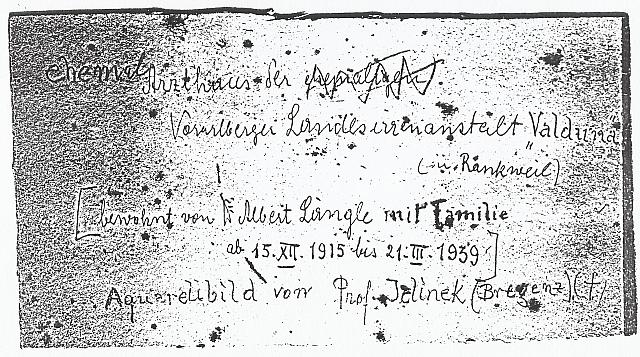 ehemal. Arzthaus der ehemaligen
Vorarlberger Landesirrenanstalt "Valduna"
(in Rankweil)
[bewohnt von Dr. Albert Längle mit Familie
ab 15.XII. 1915 bis 21.III. 1939]
Aquarellbild von Prof. Jelinek (Bregenz) (†)